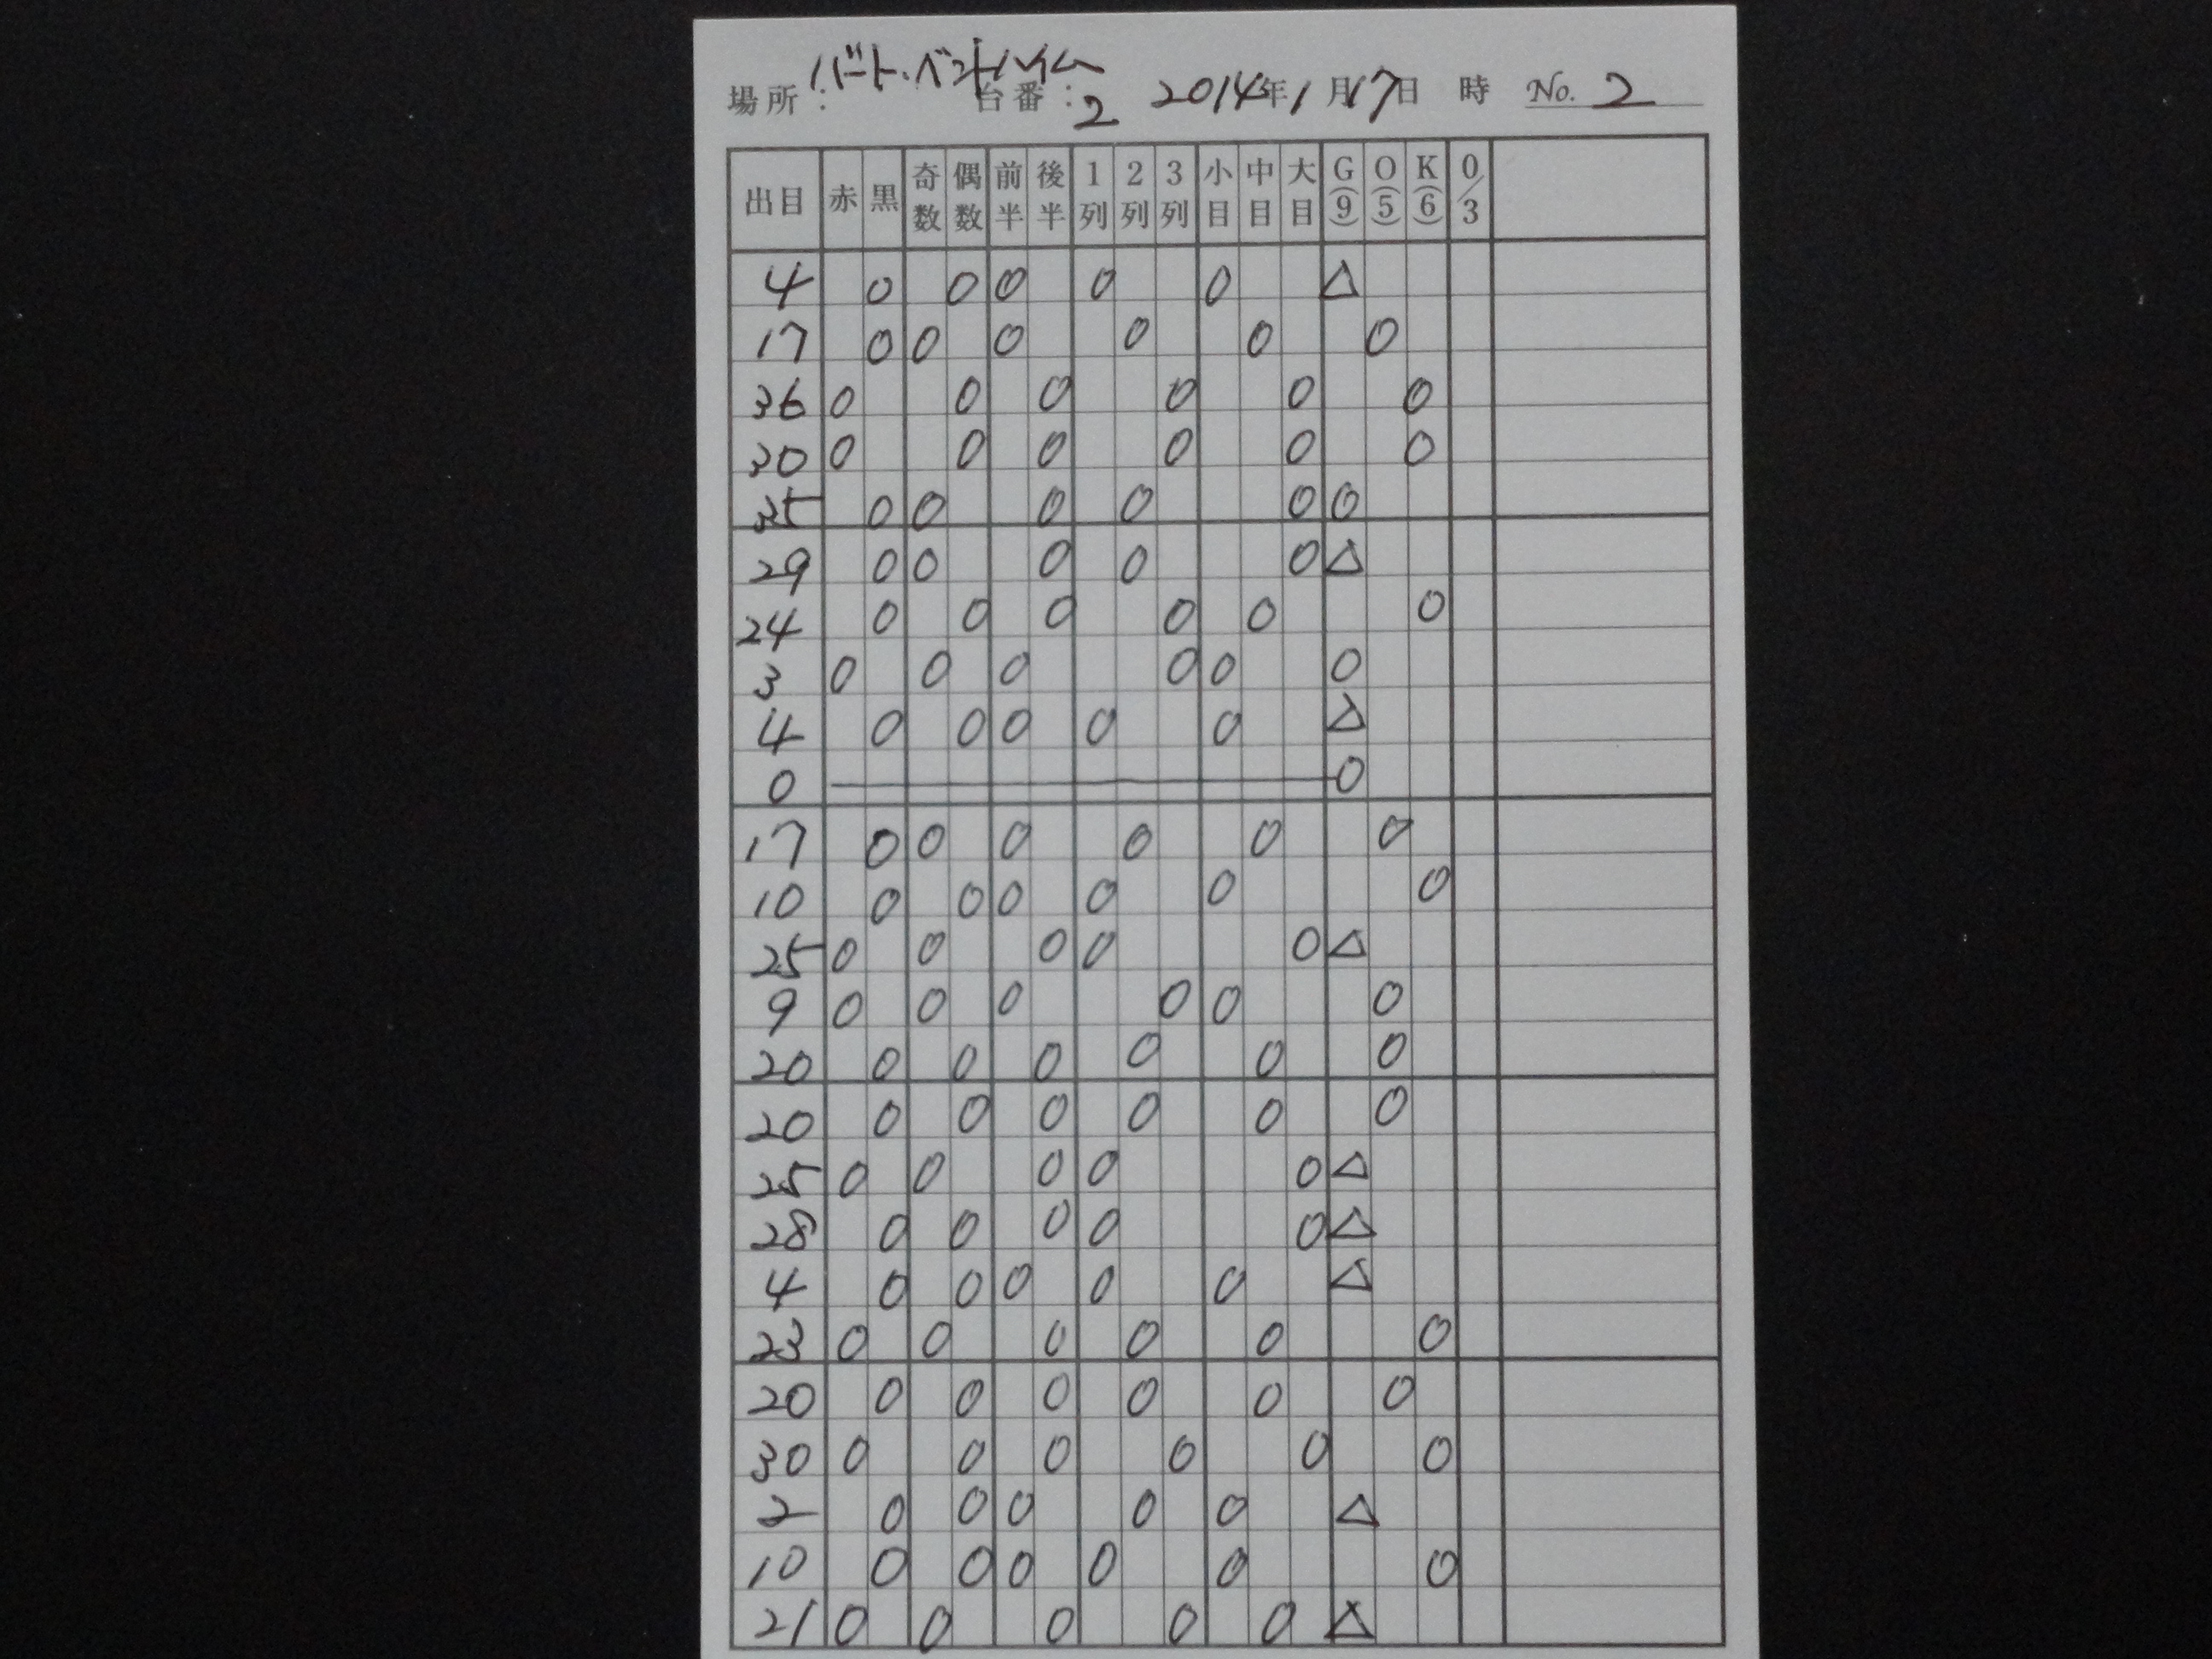 場所：バート・ベントハイム 台番：2 2014年1月17日 時 No. 2
出目 赤 黒 奇数 偶数 前半 後半 1列 2列 3列 小目 中目 大目 G(9) O(5) K(6) 0/3
4 0 0 0 0 0 △
17 0 0 0 0 0 0
36 0 0 0 0 0 0
30 0 0 0 0 0 0
35 0 0 0 0 0 0
29 0 0 0 0 0 △
24 0 0 0 0 0 0
3 0 0 0 0 0 0
4 0 0 0 0 0 △
0 0
17 0 0 0 0 0 0
10 0 0 0 0 0 0
25 0 0 0 0 0 △
9 0 0 0 0 0 0
20 0 0 0 0 0 0
20 0 0 0 0 0 0
25 0 0 0 0 0 △
28 0 0 0 0 0 △
4 0 0 0 0 0 △
23 0 0 0 0 0 0
20 0 0 0 0 0 0
30 0 0 0 0 0 0
2 0 0 0 0 0 △
10 0 0 0 0 0 0
21 0 0 0 0 0 △